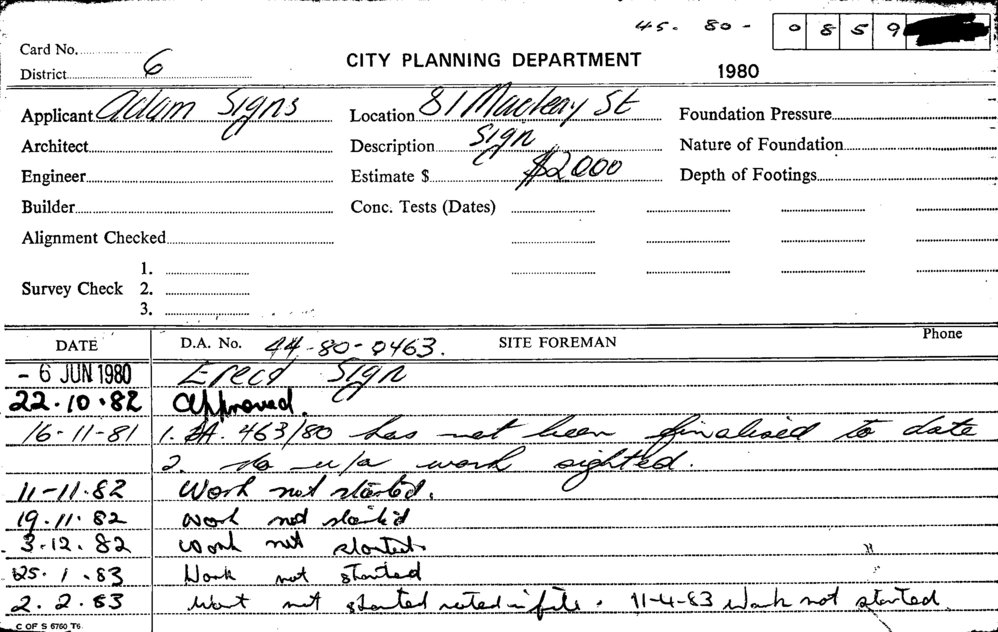 45. 80 - 0859
Card No.
District 6
CITY PLANNING DEPARTMENT
1980
Applicant Adam Signs
Location 81 Macleay St
Foundation Pressure
Architect
Description Sign
Nature of Foundation
Engineer
Estimate $ $2000
Depth of Footings
Builder
Conc. Tests (Dates)
Alignment Checked
Survey Check
1.
2.
3.
DATE
D.A. No. 44-80-0463.
SITE FOREMAN
Phone
- 6 JUN 1980 Erect Sign
22.10.82 Approved.
16-11-81 1. DA. 463/80 has not been finalised to date
2. No u/a work sighted.
11-11.82 Work not started.
19.11.82 Work not started
3.12.82 Work not started
25.1.83 Work not started
2.2.83 Work not started noted in file. 11-4-83 Work not started.
C OF S 6760 T6